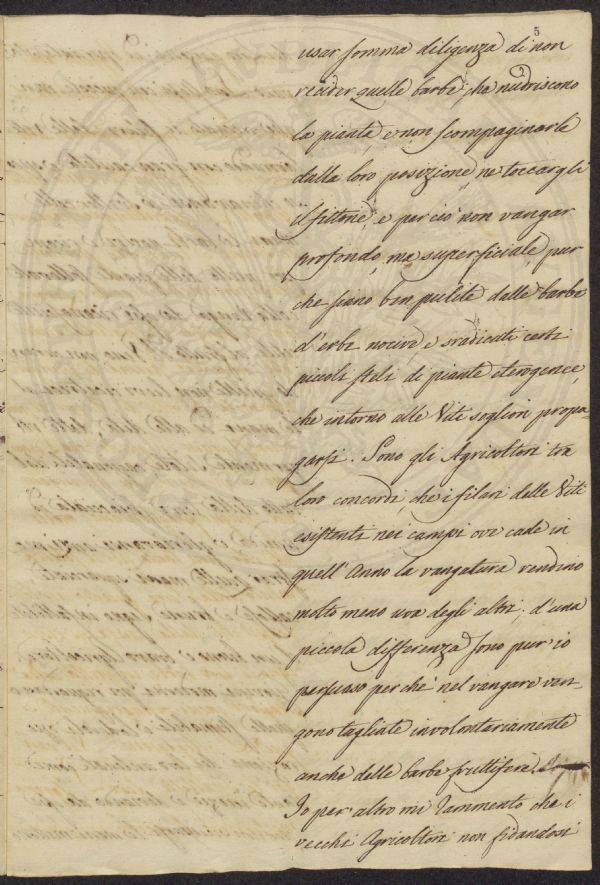 5
usar somma diligenza di non
recider quelle barbe, che nudriscono
la pianta, e non scompaginarle
dalla loro posizione, ne toccargli
il fittone, e per ciò non vangar
profondo, ma superficiale, pur
che siano ben pulite dalle barbe
d'erbe nocive, e sradicati certi
piccoli steli di piante eterogenee,
che intorno alle Vite soglion propa=
garsi. Sono gli Agricoltori tra
loro concordi, che i filari delle Viti
esistenti nei campi ove cade in
quell'Anno la vangatura rendino
molto meno uva degli altri: d'una
piccola differenza sono pur io
persuaso perchè nel vangare ven=
gono tagliate involontariamente
anche delle barbe fruttifere.
Io per altro mi rammento che i
vecchi Agricoltori non fidandosi